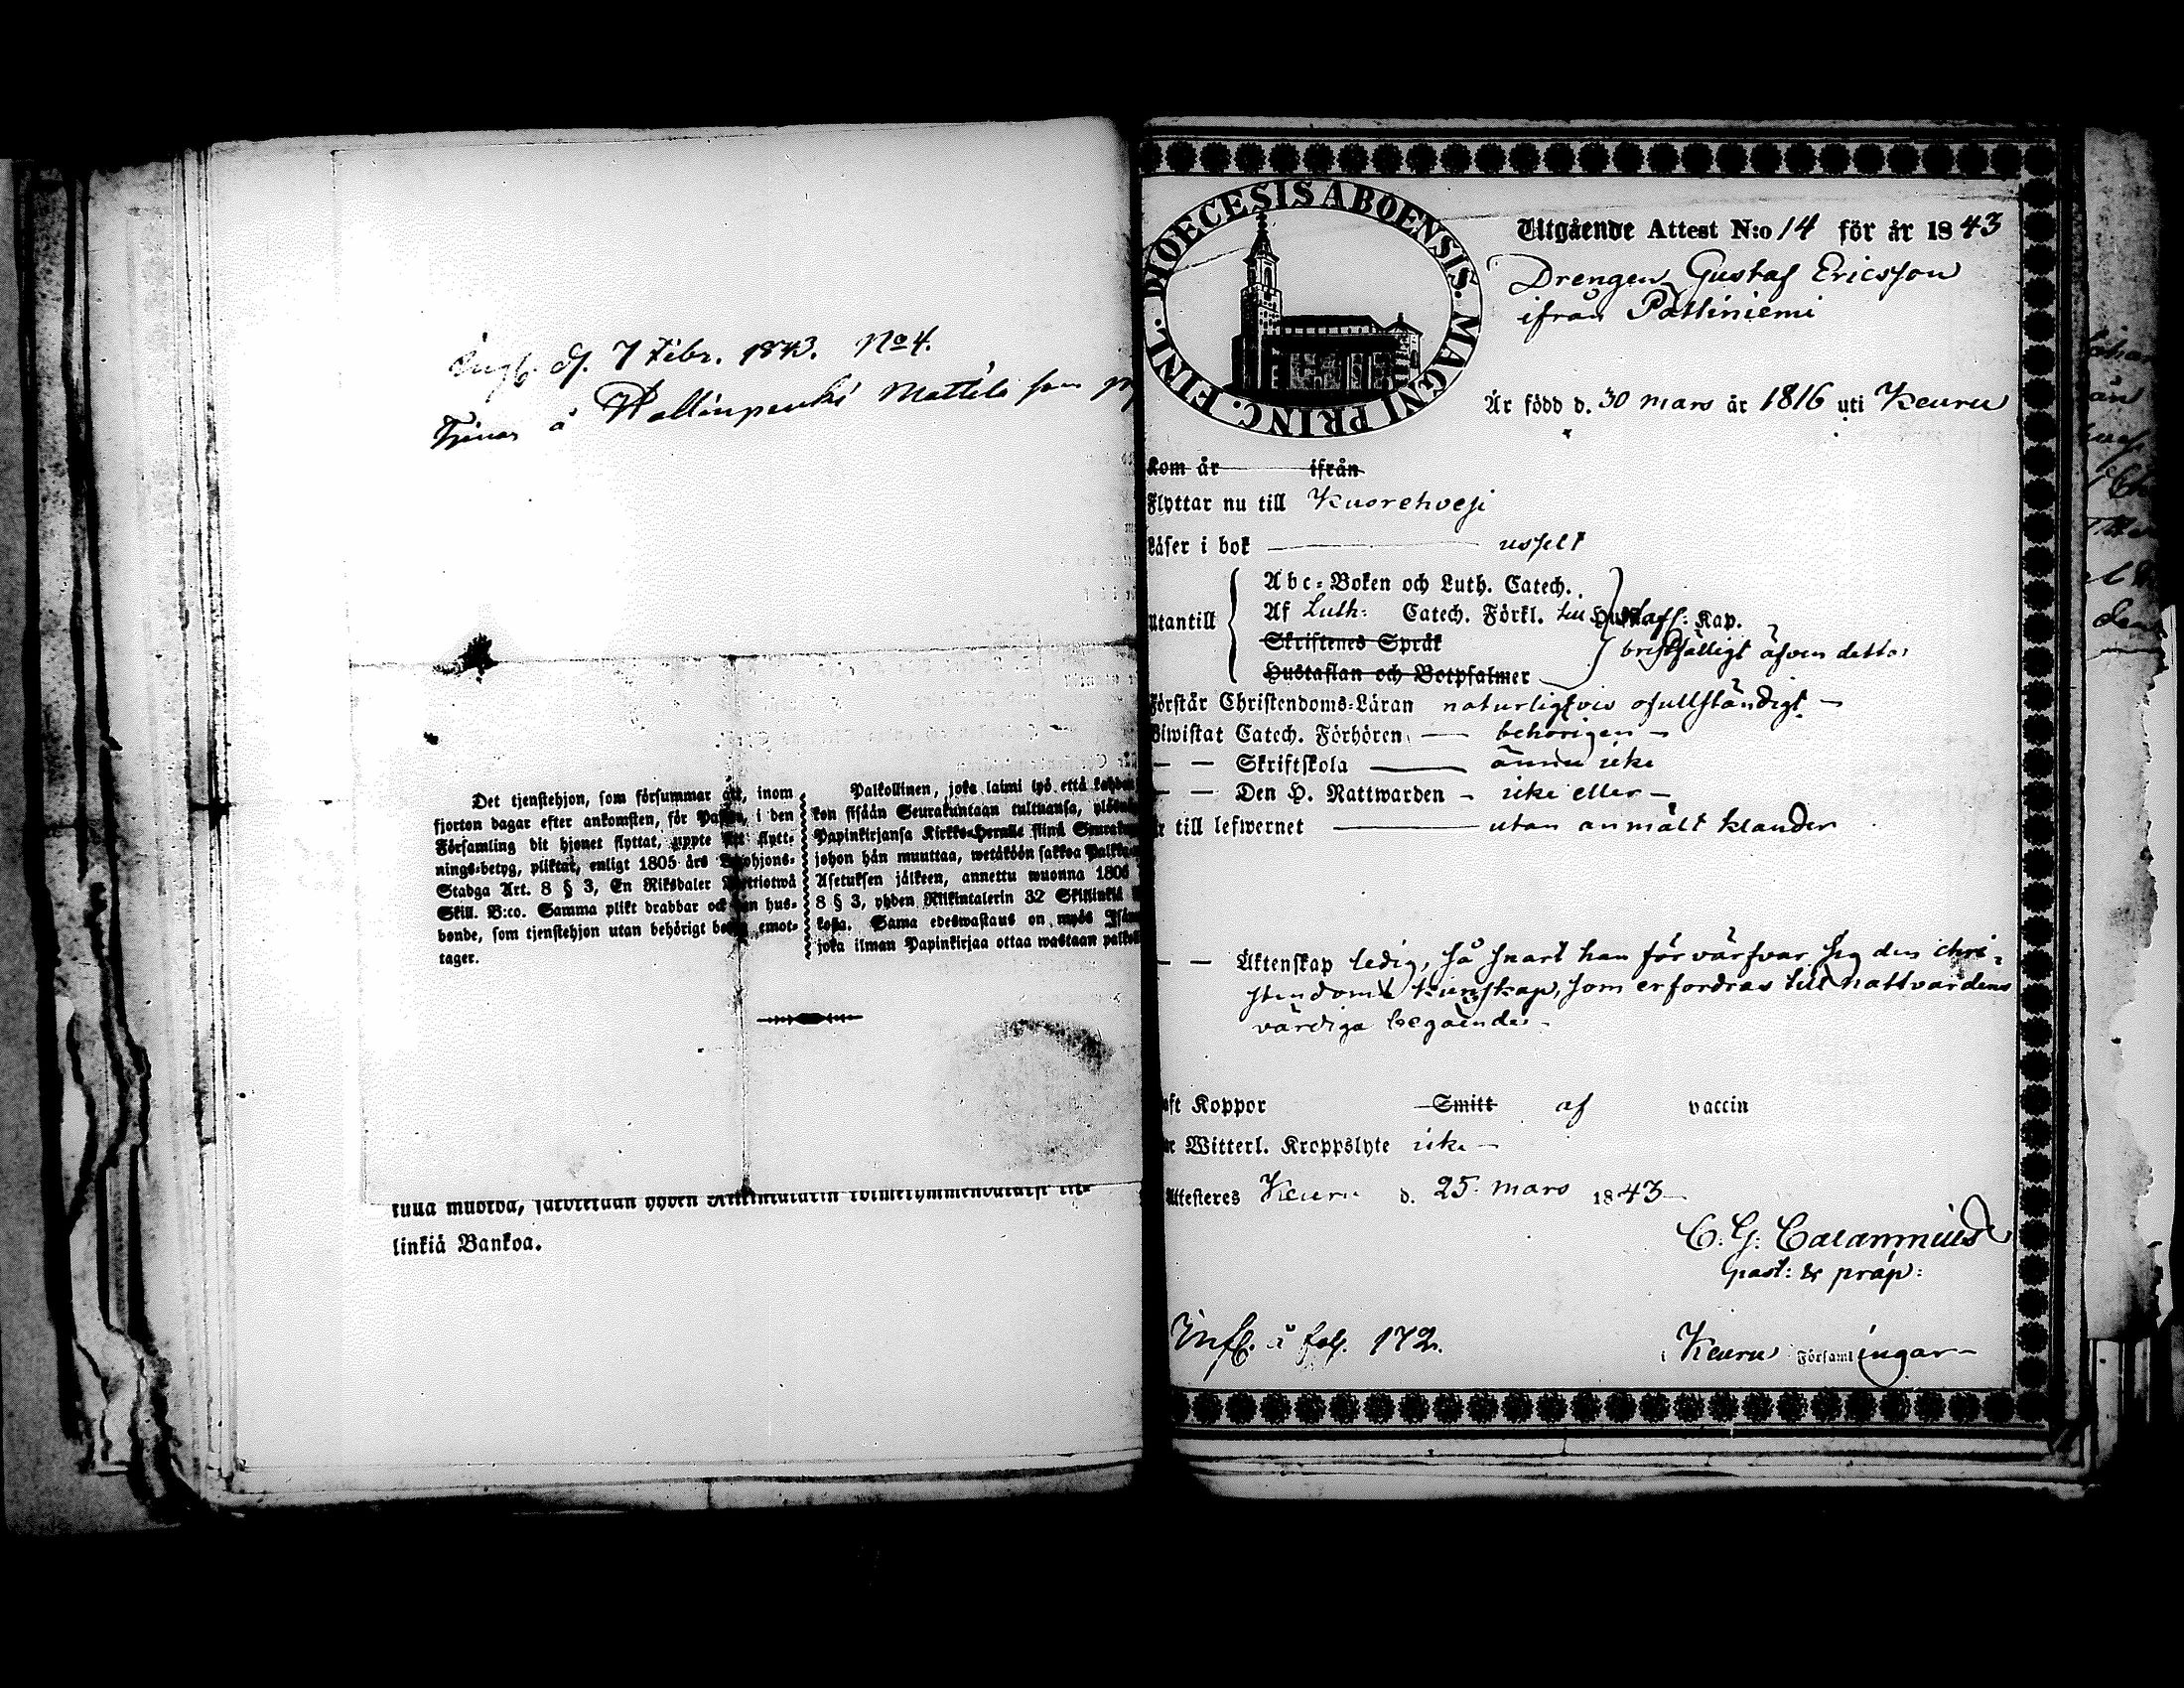 d. 7 Febr. 1843. No 4.
Tjenar å Wallinpenki Mattila som
Det tjenstehjon, som försummar att, inom
fjorton dagar efter ankomsten, för Pastor, i den
Församling dit hjonet flyttat, uppte sitt flytt-
nings-betyg, pliktar, enligt 1805 års Legohjons-
Stadga Art. 8 § 3, En Riksdaler Trettiotwå
Skill. B:co. Samma plikt drabbar ock den hus-
bonde, som tjenstehjon utan behörigt betyg emot-
tager.
Palkollinen, joka laimi lyö että
kon sisään Seurakuntaan tultuansa,
Papinkirjansa Kirkko-Herralle siinä
johon hän muuttaa, wetäköön sakkoa
Asetuksen jälkeen, annettu wuonna 1805
8 § 3, yhden Riikintalerin 32 Skillinkiä
kosta. Sama edeswastaus on myös
joka ilman Papinkirjaa ottaa wastaan
linkiä Bankoa.
DIOECESIS ABOENSIS. MAGNI PRINC. FINL.
Utgående Attest N:o 14 för år 1843
Drengen Gustaf Ericsson
ifrån Pälliniemi
Är född d. 30 mars år 1816 uti Keuru
Kom år ifrån
Flyttar nu till Kuorehvesi
Läser i bok usselt
Utantill
Abc-Boken och Luth. Catech.
Af Luth: Catech. Förkl. till Hustafl: Kap.
Skriftenes Språk
Hustaflan och Botpsalmer
bristfälligt äfven detta
Förstår Christendoms-Läran naturligtvis ofullständigt –
Biwistat Catech. Förhören – behörigen –
– – Skriftskola – ännu icke
– – Den H. Nattwarden – icke eller –
till lefwernet – utan anmält klander
– – Äktenskap ledig, så snart han förvärfvar sig den chri-
stendoms kunskap, som erfordras till nattvardens
värdiga begående. –
Haft Koppor Smitt af vaccin
Witterl. Kroppslyte icke –
Attesteres Keuru d. 25 mars 1843
C. G. Calamnius
past: & präp:
Infl. å fol. 172.
i Keuru Församlingar